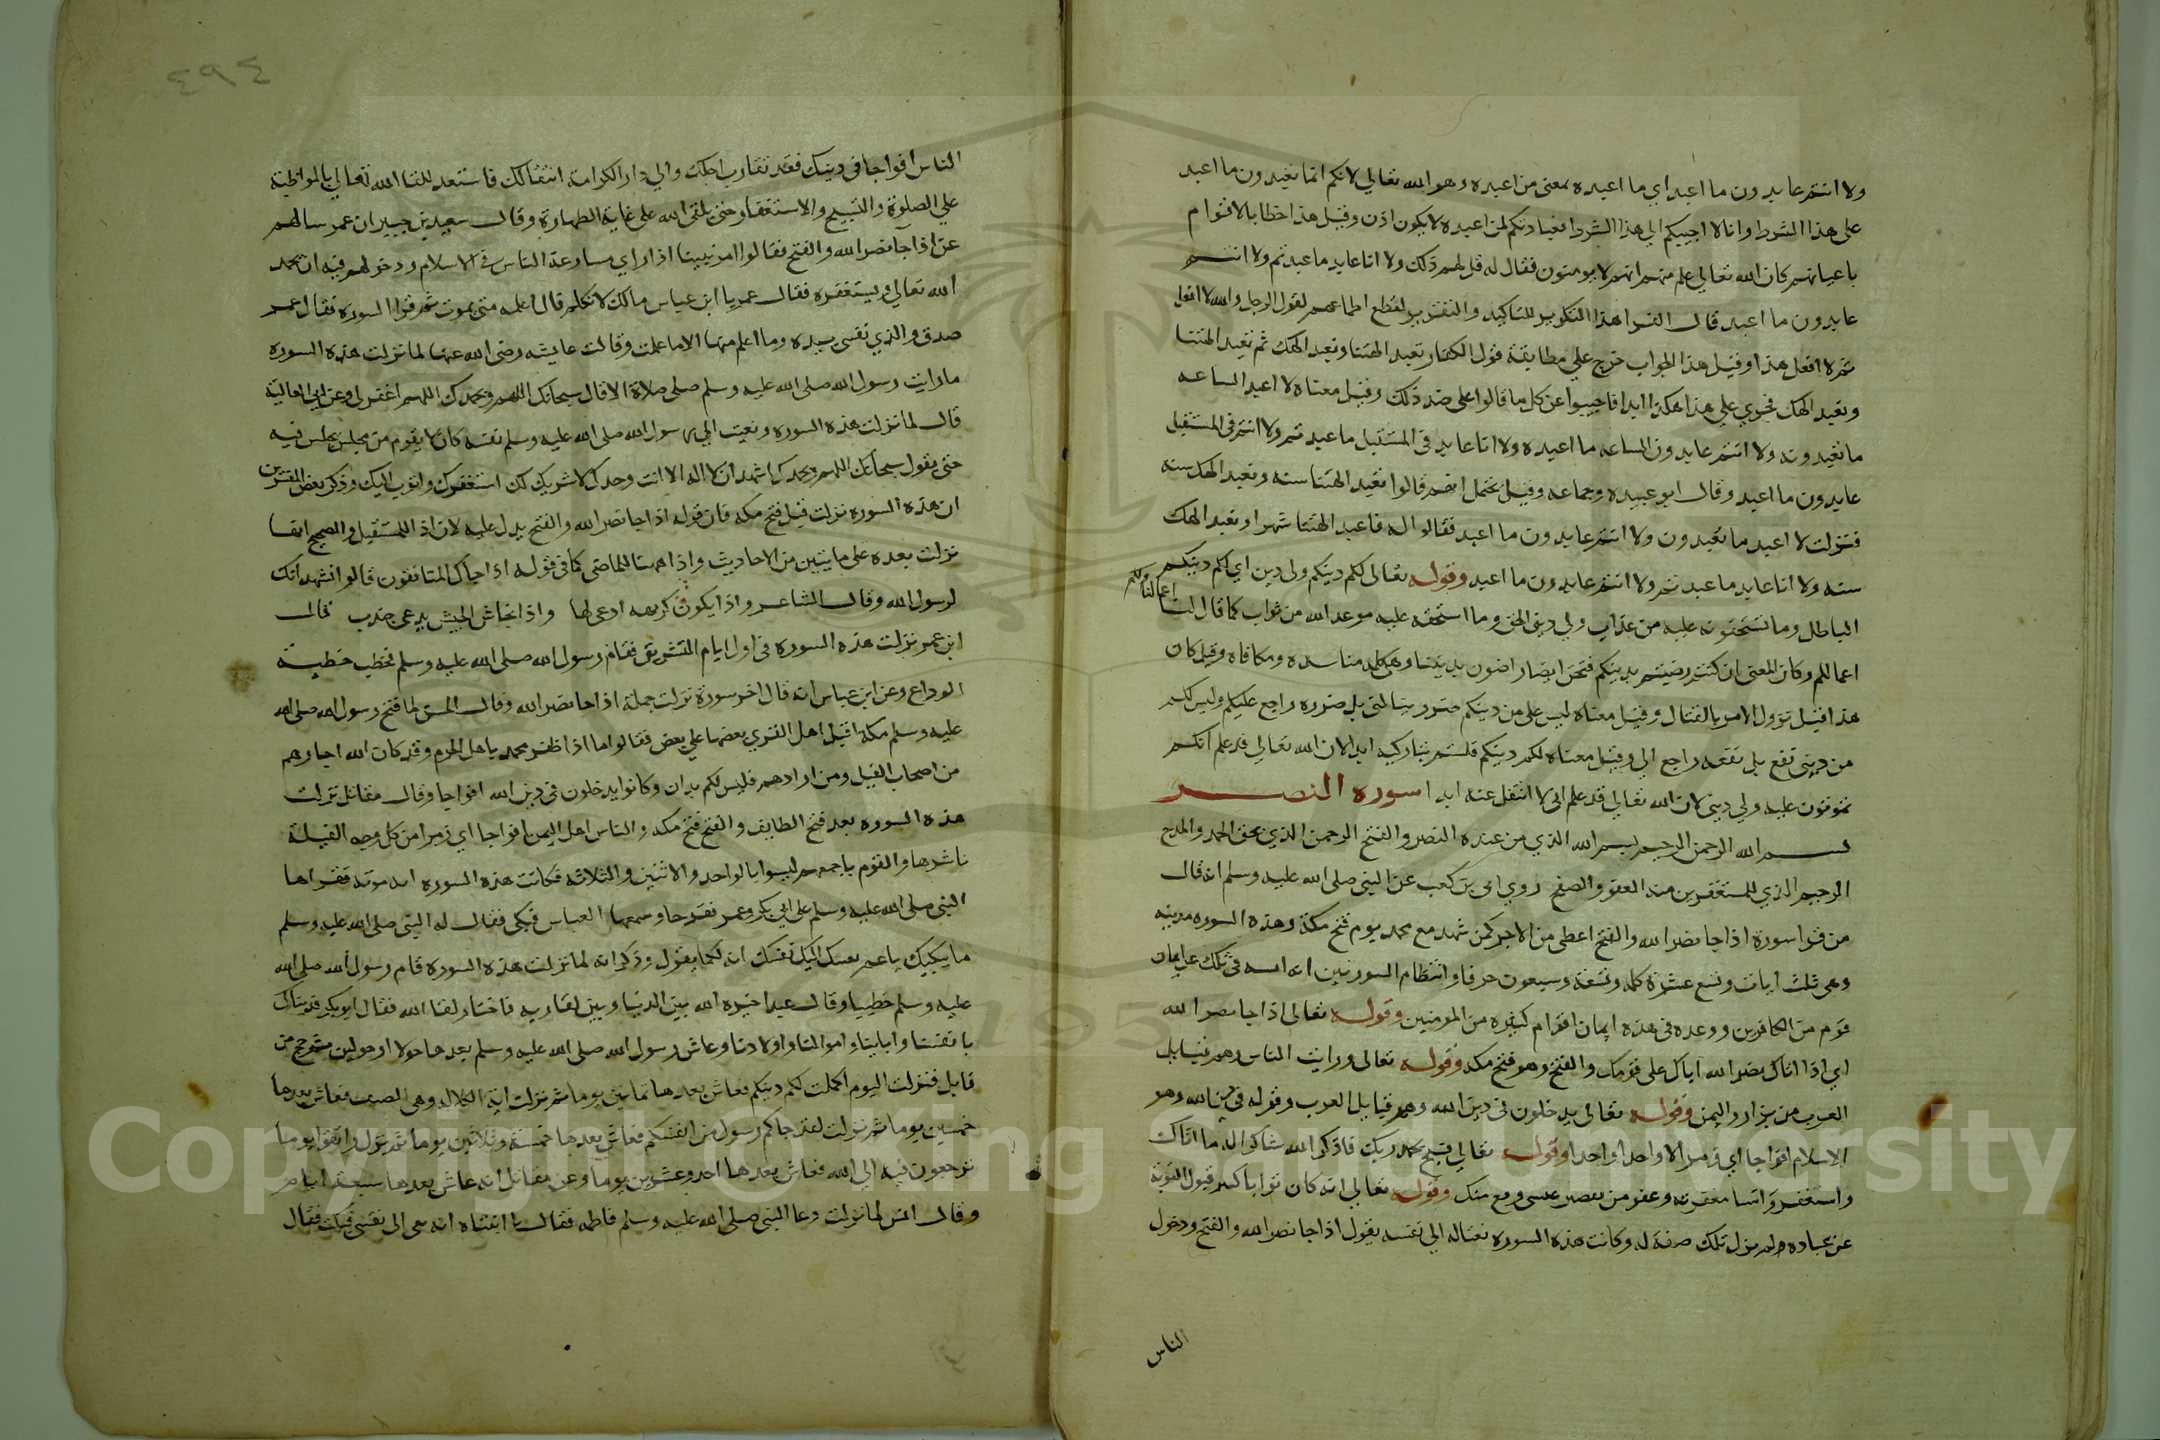 ولا انتم عابدون ما اعبد اي ما اعبده بمعنى من اعبده وهو الله تعالي لانكم انما تعبدون ما اعبد
على هذا الشرط وانا لا اجيبكم الي هذا الشرط فعبادتكم لمن اعبده لا يكون اذن وقيل هذا خطابا لاقوام
باعيانهم كان الله تعالي علم منهم انهم لا يومنون فقال له قل لهم ذلك ولا انا عابد ما عبدتم ولا انتم
عابدون ما اعبد قال الفرا هذا التكرير للتاكيد والتقرير لقطع اطماعهم لقول الرجل والله لا افعل
ثم لا افعل هذا وقيل هذا الجواب خرج علي مطابقة قول الكفار تعبد الهتنا ونعبد الهك ثم تعبد الهتنا
ونعبد الهك فيجري علي هذا هكذا ابدا فاجيبوا عن كل ما قالوا على ضد ذلك وقيل معناه لا اعبد الساعه
ما تعبدونه ولا انتم عابدون الساعه ما اعبده ولا انا عابد في المستقبل ما عبدتم ولا انتم في المستقبل
عابدون ما اعبد وقال ابو عبيده وجماعه وقيل يحتمل انهم قالوا تعبد الهتنا سنه ونعبد الهك سنه
فنزلت لا اعبد ما تعبدون ولا انتم عابدون ما اعبد فقالوا له فاعبد الهتنا شهرا ونعبد الهك
سنه ولا انا عابد ما عبدتم ولا انتم عابدون ما اعبد وقوله تعالى لكم دينكم ولى دين اي لكم دينكم
اعمالنا ولكم
الباطل وما تستحقونه عليه من عذاب ولي ديني الحق وما استحقه عليه موعد الله من ثواب كما قال لنا
اعمالكم وكان المعنى ان كنتم رضيتم بدينكم فنحن ايضا راضون بديننا وهي كلمه مناسده ومكافاه وقيل كان
هذا قبل نزول الامر بالقتال وقيل معناه ليس على من دينكم ضرر بنالني بل ضرره راجع عليكم وليس لكم
من ديني نفع بل نفعه راجع الي وقيل معناه لكم دينكم فلستم بتاركيه ابدا لان الله تعالي قد علم انكم
تموتون عليه ولي ديني لان الله تعالي قد علم اني لا انتقل عنه ابدا سوره النصر
بسم الله الرحمن الرحيم بسم الله الذي من عنده النصر والفتح الرحمن الذي بحق الحمد والمدح
الرحيم الذي للمستغفرين منه العفو والصفح روي ابى بن كعب عن النبي صلى الله عليه وسلم انه قال
من قرا سورة اذا جا نصر الله والفتح اعطى من الاجر كمن شهد مع محمد يوم فتح مكة وهذه السوره مدينه
وهي ثلث ايات وتسع عشرة كلمه وتسعة وسبعون حرفا وانتظام السورتين انه الله في تلك عن ايمان
قوم من الكافرين ووعده في هذه ايمان اقوام كثيره من المومنين وقوله تعالى اذا جا نصر الله
اي اذا اتاك نصر الله اياك على قومك والفتح وهو فتح مكه وقوله تعالى ورايت الناس وهم قبايل
العرب من نزار واليمن وقوله تعالي يدخلون في دين الله وهم قبايل العرب وقوله في دين الله وهو
الاسلام افواجا اي زمرا لا واحدا واحدا وقوله تعالي فسبح بحمد ربك فاذكر الله شاكرا له ما اتاك
واستغفره وقوله تعالي انه كان توابا كثير قبول التوبة
عن عباده ولم يزل تلك صفة له وكانت هذه السوره نعياله الي نفسه يقول اذا جا نصر الله والفتح ودخول
الناس
٤٩٤
الناس افواجا في دينك فقد تقارب اجلك والي دار الكرامة انتقالك فاستعد للقا الله تعالي بالمواظبة
علي الصلوة والتسبيح والاستغفار حتى تلقى الله على غاية الطهارة وقال سعيد بن جبير ان عمر سالهم
عن اذا جا نصر الله والفتح فقالوا امر نبينا اذا راي مسارعة الناس في الاسلام ودخولهم فيه ان يحمد
الله تعالي ويستغفره فقال عمر يا ابن عباس مالك لا تكلم قال اعلمه متى يموت ثم قرا السوره فقال عمر
صدق والذي نفسى بيده وما اعلم منها الا ما علمت وقالت عايشه رضى الله عنها لما نزلت هذه السوره
ما رايت رسول الله صلى الله عليه وسلم صلى صلاة الا قال سبحانك اللهم وبحمدك اللهم اغفر لي وعن ابي العالية
قال لما نزلت هذه السوره ونعيت الي رسول الله صلى الله عليه وسلم نفسه كان لا يقوم من مجلس يجلس فيه
حتى يقول سبحانك اللهم وبحمدك اشهد ان لا اله الا انت وحدك لا شريك لك استغفرك واتوب اليك وذكر بعض المفسرين
ان هذه السوره نزلت قبل فتح مكه فان قوله اذا جا نصر الله والفتح يدل عليه لان اذا للمستقبل والصحيح انها
نزلت بعده على ما يتبين من الاحاديث واذا همنا للماضى كما في قوله اذا جاك المنافقون قالوا نشهد انك
لرسول الله وقال الشاعر واذا يكون كريهه ادعى لها واذا يحاش الحيش يدعى جندب قال
ابن عمر نزلت هذه السوره في اول ايام التشريق فقام رسول الله صلى الله عليه وسلم فخطب خطبة
الوداع وعن ابن عباس انه قال اخر سورة نزلت جملة اذا جا نصر الله وقال الحسن لما فتح رسول الله صلى الله
عليه وسلم مكة اقبل اهل القري بعضها علي بعض فقالوا اما اذا ظفر محمد باهل الحرم وقد كان الله اجارهم
من اصحاب الفيل ومن ارادهم فليس لكم يدان وكانوا يدخلون في دين الله افواجا وقال مقاتل نزلت
هذه السوره بعد فتح الطايف والفتح فتح مكه والناس اهل اليمن افواجا اي زمرا من كل وجه القبيلة
باشرها والقوم باجمعهم ليسوا بالواحد والاثنين والثلاثه فكانت هذه السوره ايه موته فقراها
النبي صلى الله عليه وسلم على ابي بكر وعمر ففرحا وسمعها العباس فبكى فقال له النبي صلى الله عليه وسلم
ما يبكيك يا عم نعيت اليك نفسك انه لكما يقول وذكر انه لما نزلت هذه السوره قام رسول الله صلى الله
عليه وسلم خطيبا وقال عبدا خيره الله بين الدنيا وبين لقاربه فاختار لقا الله فقال ابو بكر فديناك
بانفسنا وابائنا واموالنا واولادنا وعاش رسول الله صلى الله عليه وسلم بعدها حولا او حولين
قابل فنزلت اليوم اكملت لكم دينكم فعاش بعدها ثمانين يوما ثم نزلت اية الكلاله وهى الصيف فعاش بعدها
خمسين يوما ثم نزلت لقد جاكم رسول من انفسكم فعاش بعدها خمسة وثلاثين يوما ثم نزل واتقوا يوما
ترجعون فيه الي الله فعاش بعدها احد وعشرين يوما وعن مقاتل انه عاش بعدها سبعة ايام
وقال انس لما نزلت دعا النبي صلى الله عليه وسلم فاطمه فقال يا ابنتاه انه نعى الى نفسى فبكت فقال
Copyright © King Saud University